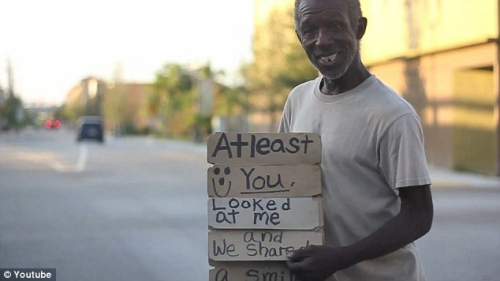 Atleast
You.
Looked
at me
and
We Shared
A Smi
© Youtube